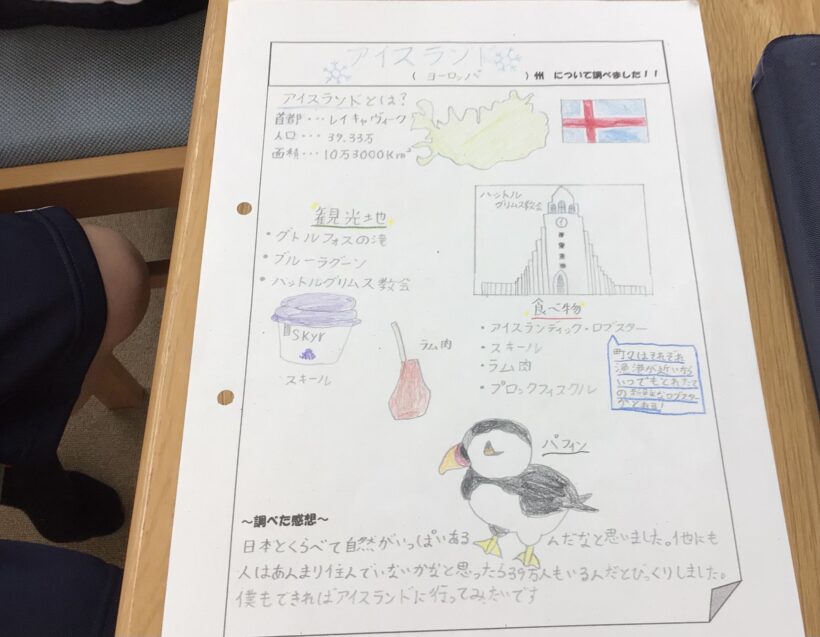 アイスランド
(ヨーロッパ)州 について調べました!!
アイスランドとは?
首都・・・レイキャヴィーク
人口・・・39.33万
面積・・・10万3000Km²
観光地
・グトルフォスの滝
・ブルーラグーン
・ハットルグリムス教会
ハットル
グリムス教会
食べ物
・アイスランディック・ロブスター
・スキール
・ラム肉
・プロックフィスクル
町は
漁港が近いから
いつでもとれたて
の新鮮なロブスター
Skyr
スキール
ラム肉
パフィン
~調べた感想~
日本とくらべて自然がいっぱいあるんだなと思いました。他にも
人はあんまり住んでいないかなと思ったら39万人もいるんだとびっくりしました。
僕もできればアイスランドに行ってみたいです